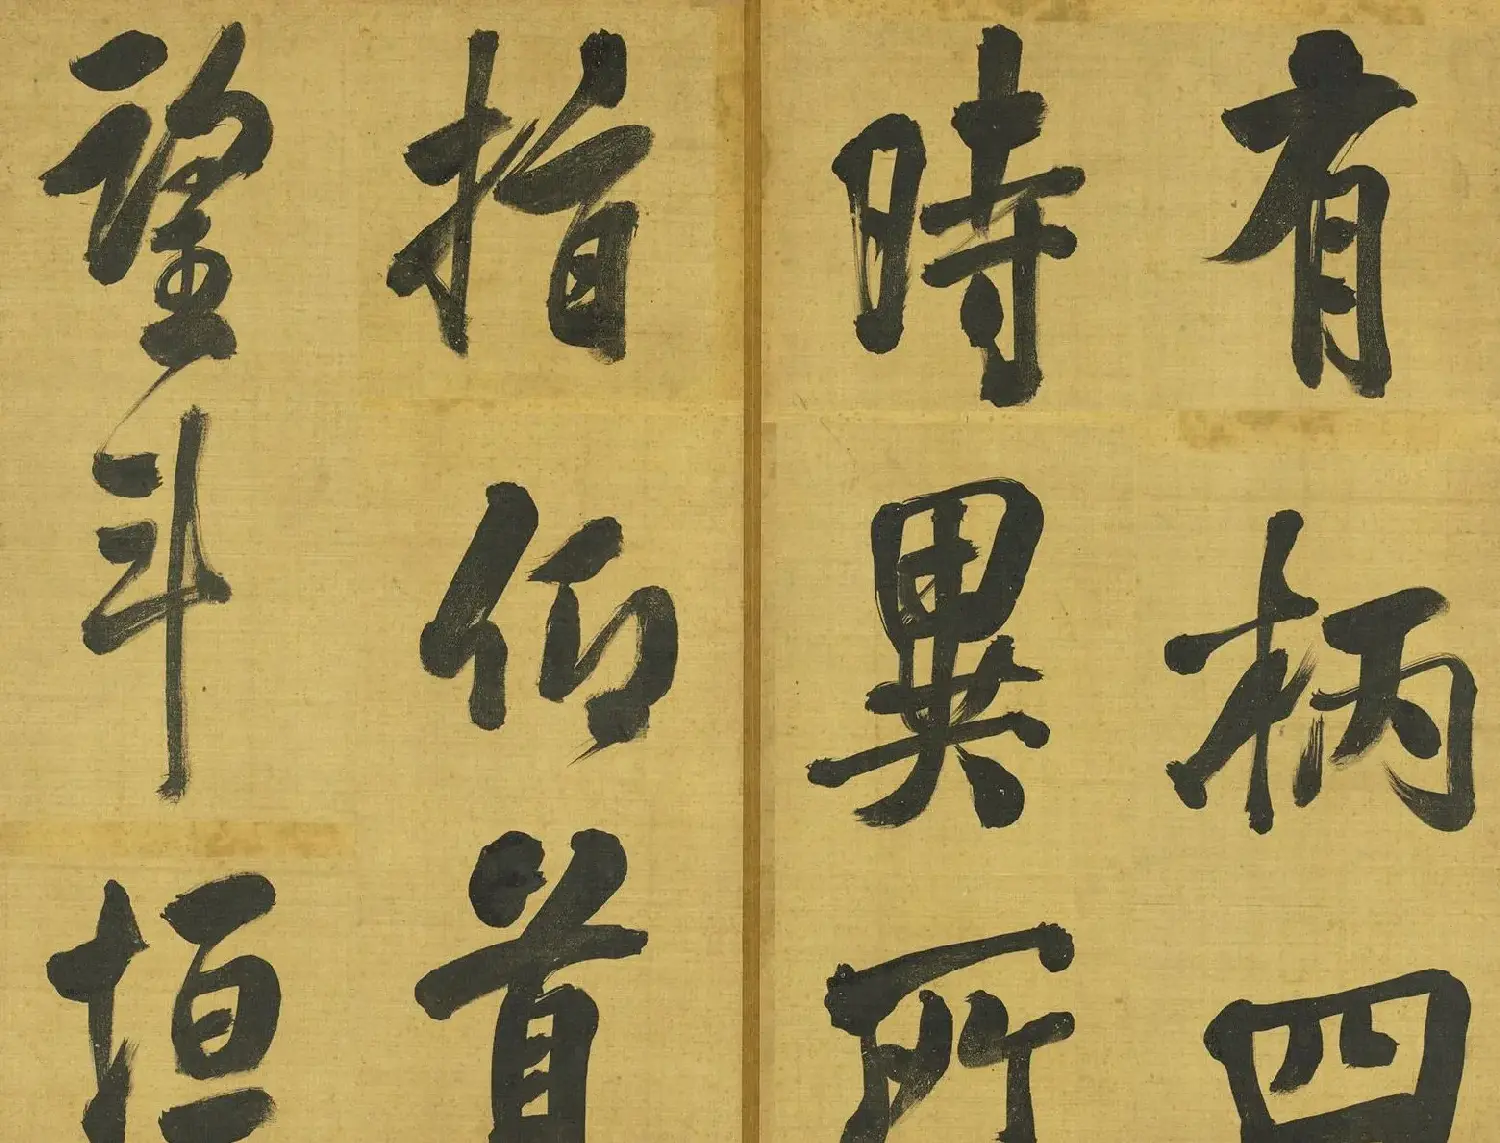 有柄四
時異所
指仰首
望斗垣